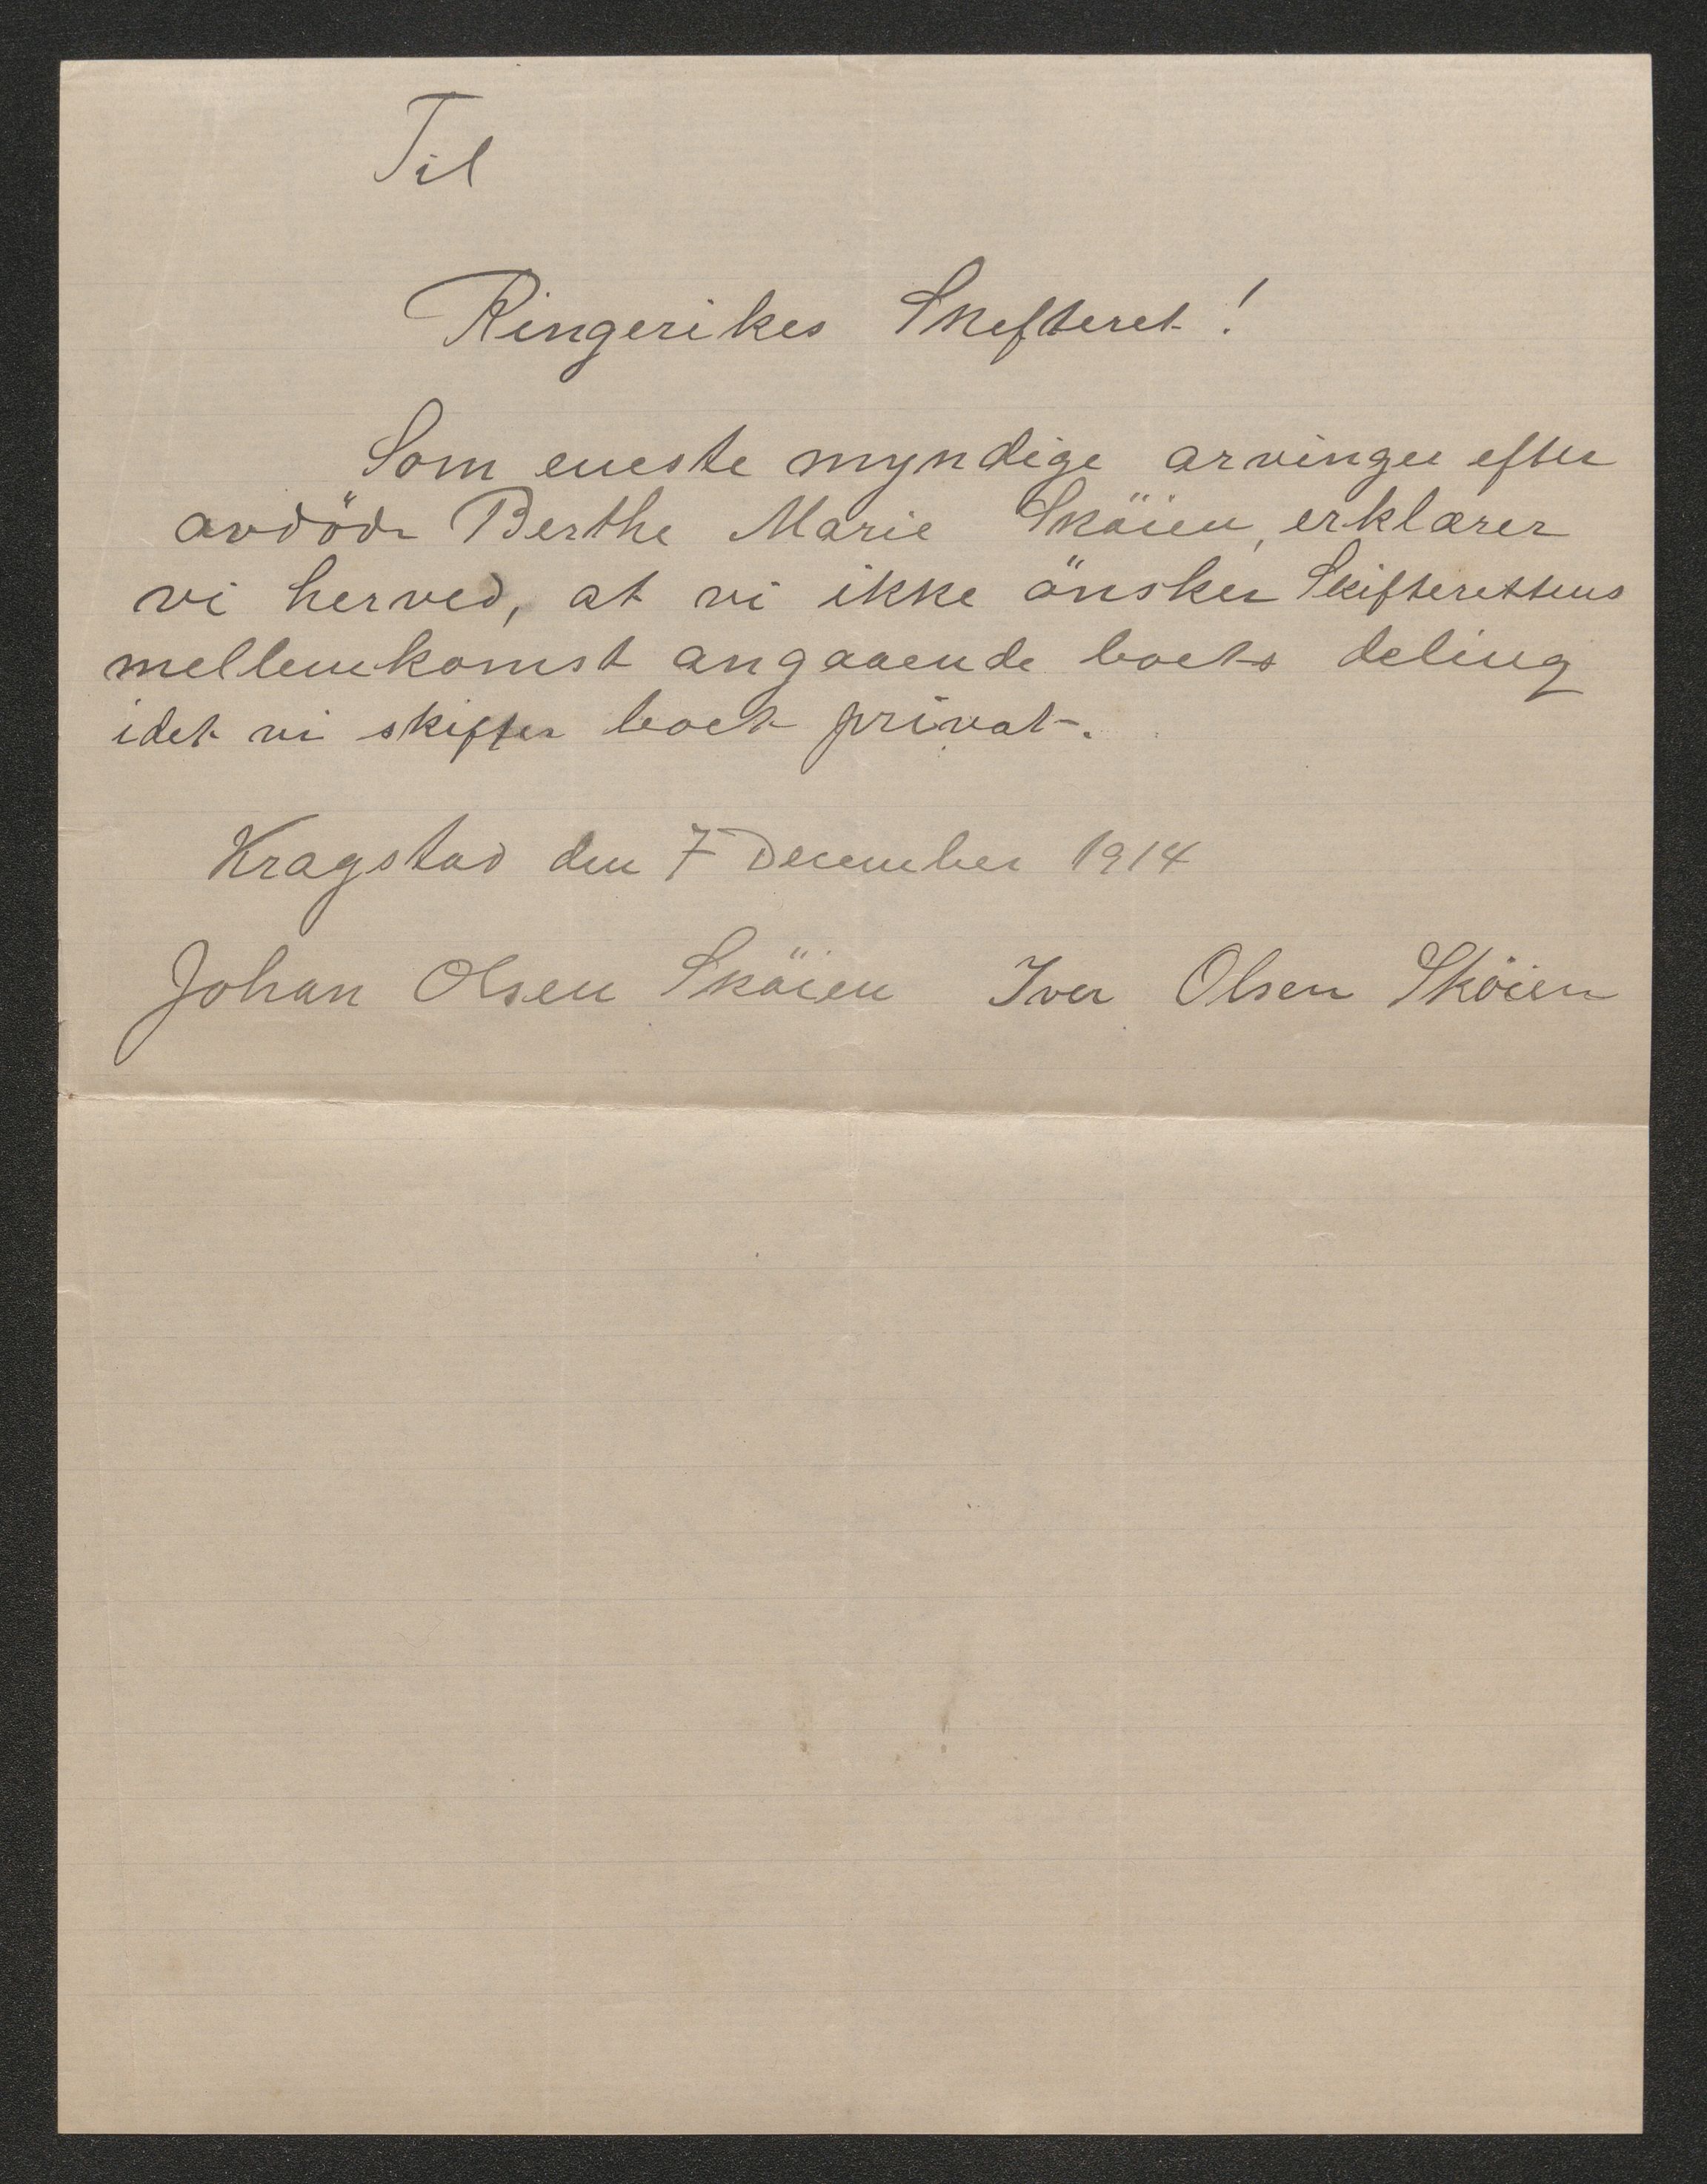 Til
Ringerikes Skifteret!
Som eneste myndige arvinger efter
avdöde Berthe Marie Sköien, erklærer
vi herved, at vi ikke önsker Skifterettens
mellemkomst angaaende boets deling
idet vi skifter boet privat.
Kragstad den 7 December 1914
Johan Olsen Sköien Iver Olsen Sköien